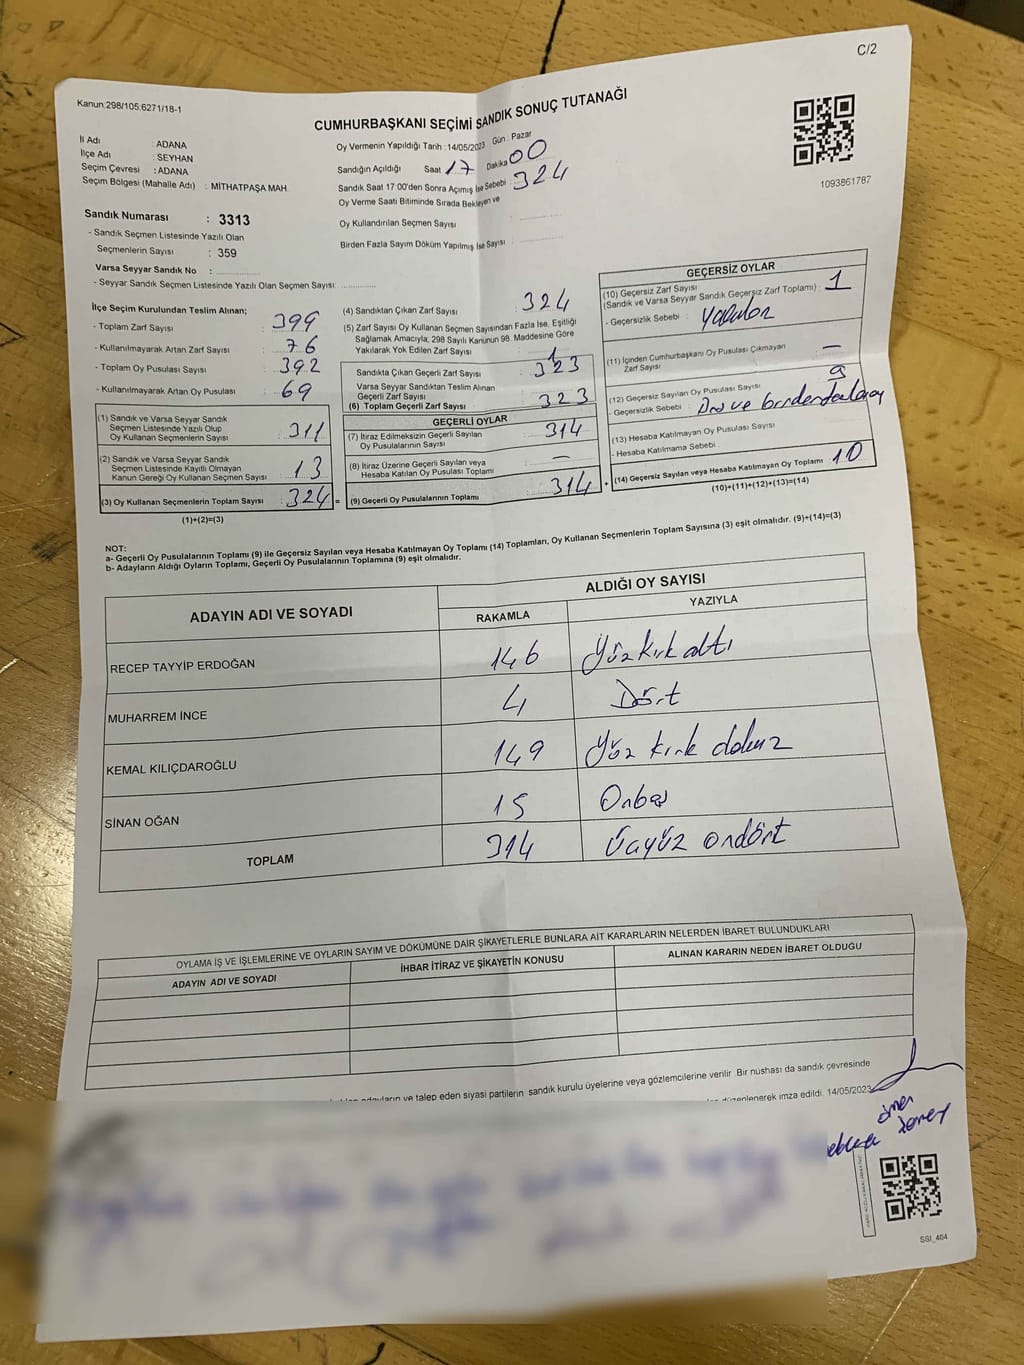 C/2
Kanun:298/105;6271/18-1
CUMHURBAŞKANI SEÇİMİ SANDIK SONUÇ TUTANAĞI
İl Adı : ADANA
İlçe Adı : SEYHAN
Seçim Çevresi : ADANA
Seçim Bölgesi (Mahalle Adı) : MİTHATPAŞA MAH.
Oy Vermenin Yapıldığı Tarih : 14/05/2023 Gün : Pazar
Sandığın Açıldığı Saat 17 Dakika 00
Sandık Saat 17:00'den Sonra Açımış İse Sebebi : 324
Oy Verme Saati Bitiminde Sırada Bekleyen ve
Oy Kullandırılan Seçmen Sayısı
Birden Fazla Sayım Döküm Yapılmış İse Sayısı :
1093861787
Sandık Numarası : 3313
- Sandık Seçmen Listesinde Yazılı Olan
Seçmenlerin Sayısı : 359
Varsa Seyyar Sandık No :
- Seyyar Sandık Seçmen Listesinde Yazılı Olan Seçmen Sayısı:
İlçe Seçim Kurulundan Teslim Alınan;
- Toplam Zarf Sayısı : 399
- Kullanılmayarak Artan Zarf Sayısı : 76
- Toplam Oy Pusulası Sayısı : 392
- Kullanılmayarak Artan Oy Pusulası : 69
(1) Sandık ve Varsa Seyyar Sandık
Seçmen Listesinde Yazılı Olup
Oy Kullanan Seçmenlerin Sayısı : 311
(2) Sandık ve Varsa Seyyar Sandık
Seçmen Listesinde Kayıtlı Olmayan
Kanun Gereği Oy Kullanan Seçmen Sayısı : 13
(3) Oy Kullanan Seçmenlerin Toplam Sayısı : 324 =
(1)+(2)=(3)
(4) Sandıktan Çıkan Zarf Sayısı : 324
(5) Zarf Sayısı Oy Kullanan Seçmen Sayısından Fazla İse, Eşitliği
Sağlamak Amacıyla; 298 Sayılı Kanunun 98. Maddesine Göre
Yakılarak Yok Edilen Zarf Sayısı :
Sandıkta Çıkan Geçerli Zarf Sayısı : 323
Varsa Seyyar Sandıktan Teslim Alınan
Geçerli Zarf Sayısı
(6) Toplam Geçerli Zarf Sayısı : 323
GEÇERLİ OYLAR
(7) İtiraz Edilmeksizin Geçerli Sayılan
Oy Pusulalarının Sayısı : 314
(8) İtiraz Üzerine Geçerli Sayılan veya
Hesaba Katılan Oy Pusulası Toplamı : –
(9) Geçerli Oy Pusulalarının Toplamı : 314 +
GEÇERSİZ OYLAR
(10) Geçersiz Zarf Sayısı
(Sandık ve Varsa Seyyar Sandık Geçersiz Zarf Toplamı) : 1
- Geçersizlik Sebebi :
(11) İçinden Cumhurbaşkanı Oy Pusulası Çıkmayan
Zarf Sayısı : –
(12) Geçersiz Sayılan Oy Pusulası Sayısı : 9
- Geçersizlik Sebebi :
(13) Hesaba Katılmayan Oy Pusulası Sayısı :
- Hesaba Katılmama Sebebi :
(14) Geçersiz Sayılan veya Hesaba Katılmayan Oy Toplamı : 10
(10)+(11)+(12)+(13)=(14)
NOT:
a- Geçerli Oy Pusulalarının Toplamı (9) ile Geçersiz Sayılan veya Hesaba Katılmayan Oy Toplamı (14) Toplamları, Oy Kullanan Seçmenlerin Toplam Sayısına (3) eşit olmalıdır. (9)+(14)=(3)
b- Adayların Aldığı Oyların Toplamı, Geçerli Oy Pusulalarının Toplamına (9) eşit olmalıdır.
ADAYIN ADI VE SOYADI
ALDIĞI OY SAYISI
RAKAMLA YAZIYLA
RECEP TAYYİP ERDOĞAN 146 Yüz kırk altı
MUHARREM İNCE 4 Dört
KEMAL KILIÇDAROĞLU 149 Yüz kırk dokuz
SİNAN OĞAN 15 Onbeş
TOPLAM 314 Üçyüz ondört
OYLAMA İŞ VE İŞLEMLERİNE VE OYLARIN SAYIM VE DÖKÜMÜNE DAİR ŞİKAYETLERLE BUNLARA AİT KARARLARIN NELERDEN İBARET BULUNDUKLARI
ADAYIN ADI VE SOYADI İHBAR İTİRAZ VE ŞİKAYETİN KONUSU ALINAN KARARIN NEDEN İBARET OLDUĞU
ve talep eden siyasi partilerin sandık kurulu üyelerine veya gözlemcilerine verilir. Bir nüshası da sandık çevresinde
düzenlenerek imza edildi. 14/05/2023
SSI_404